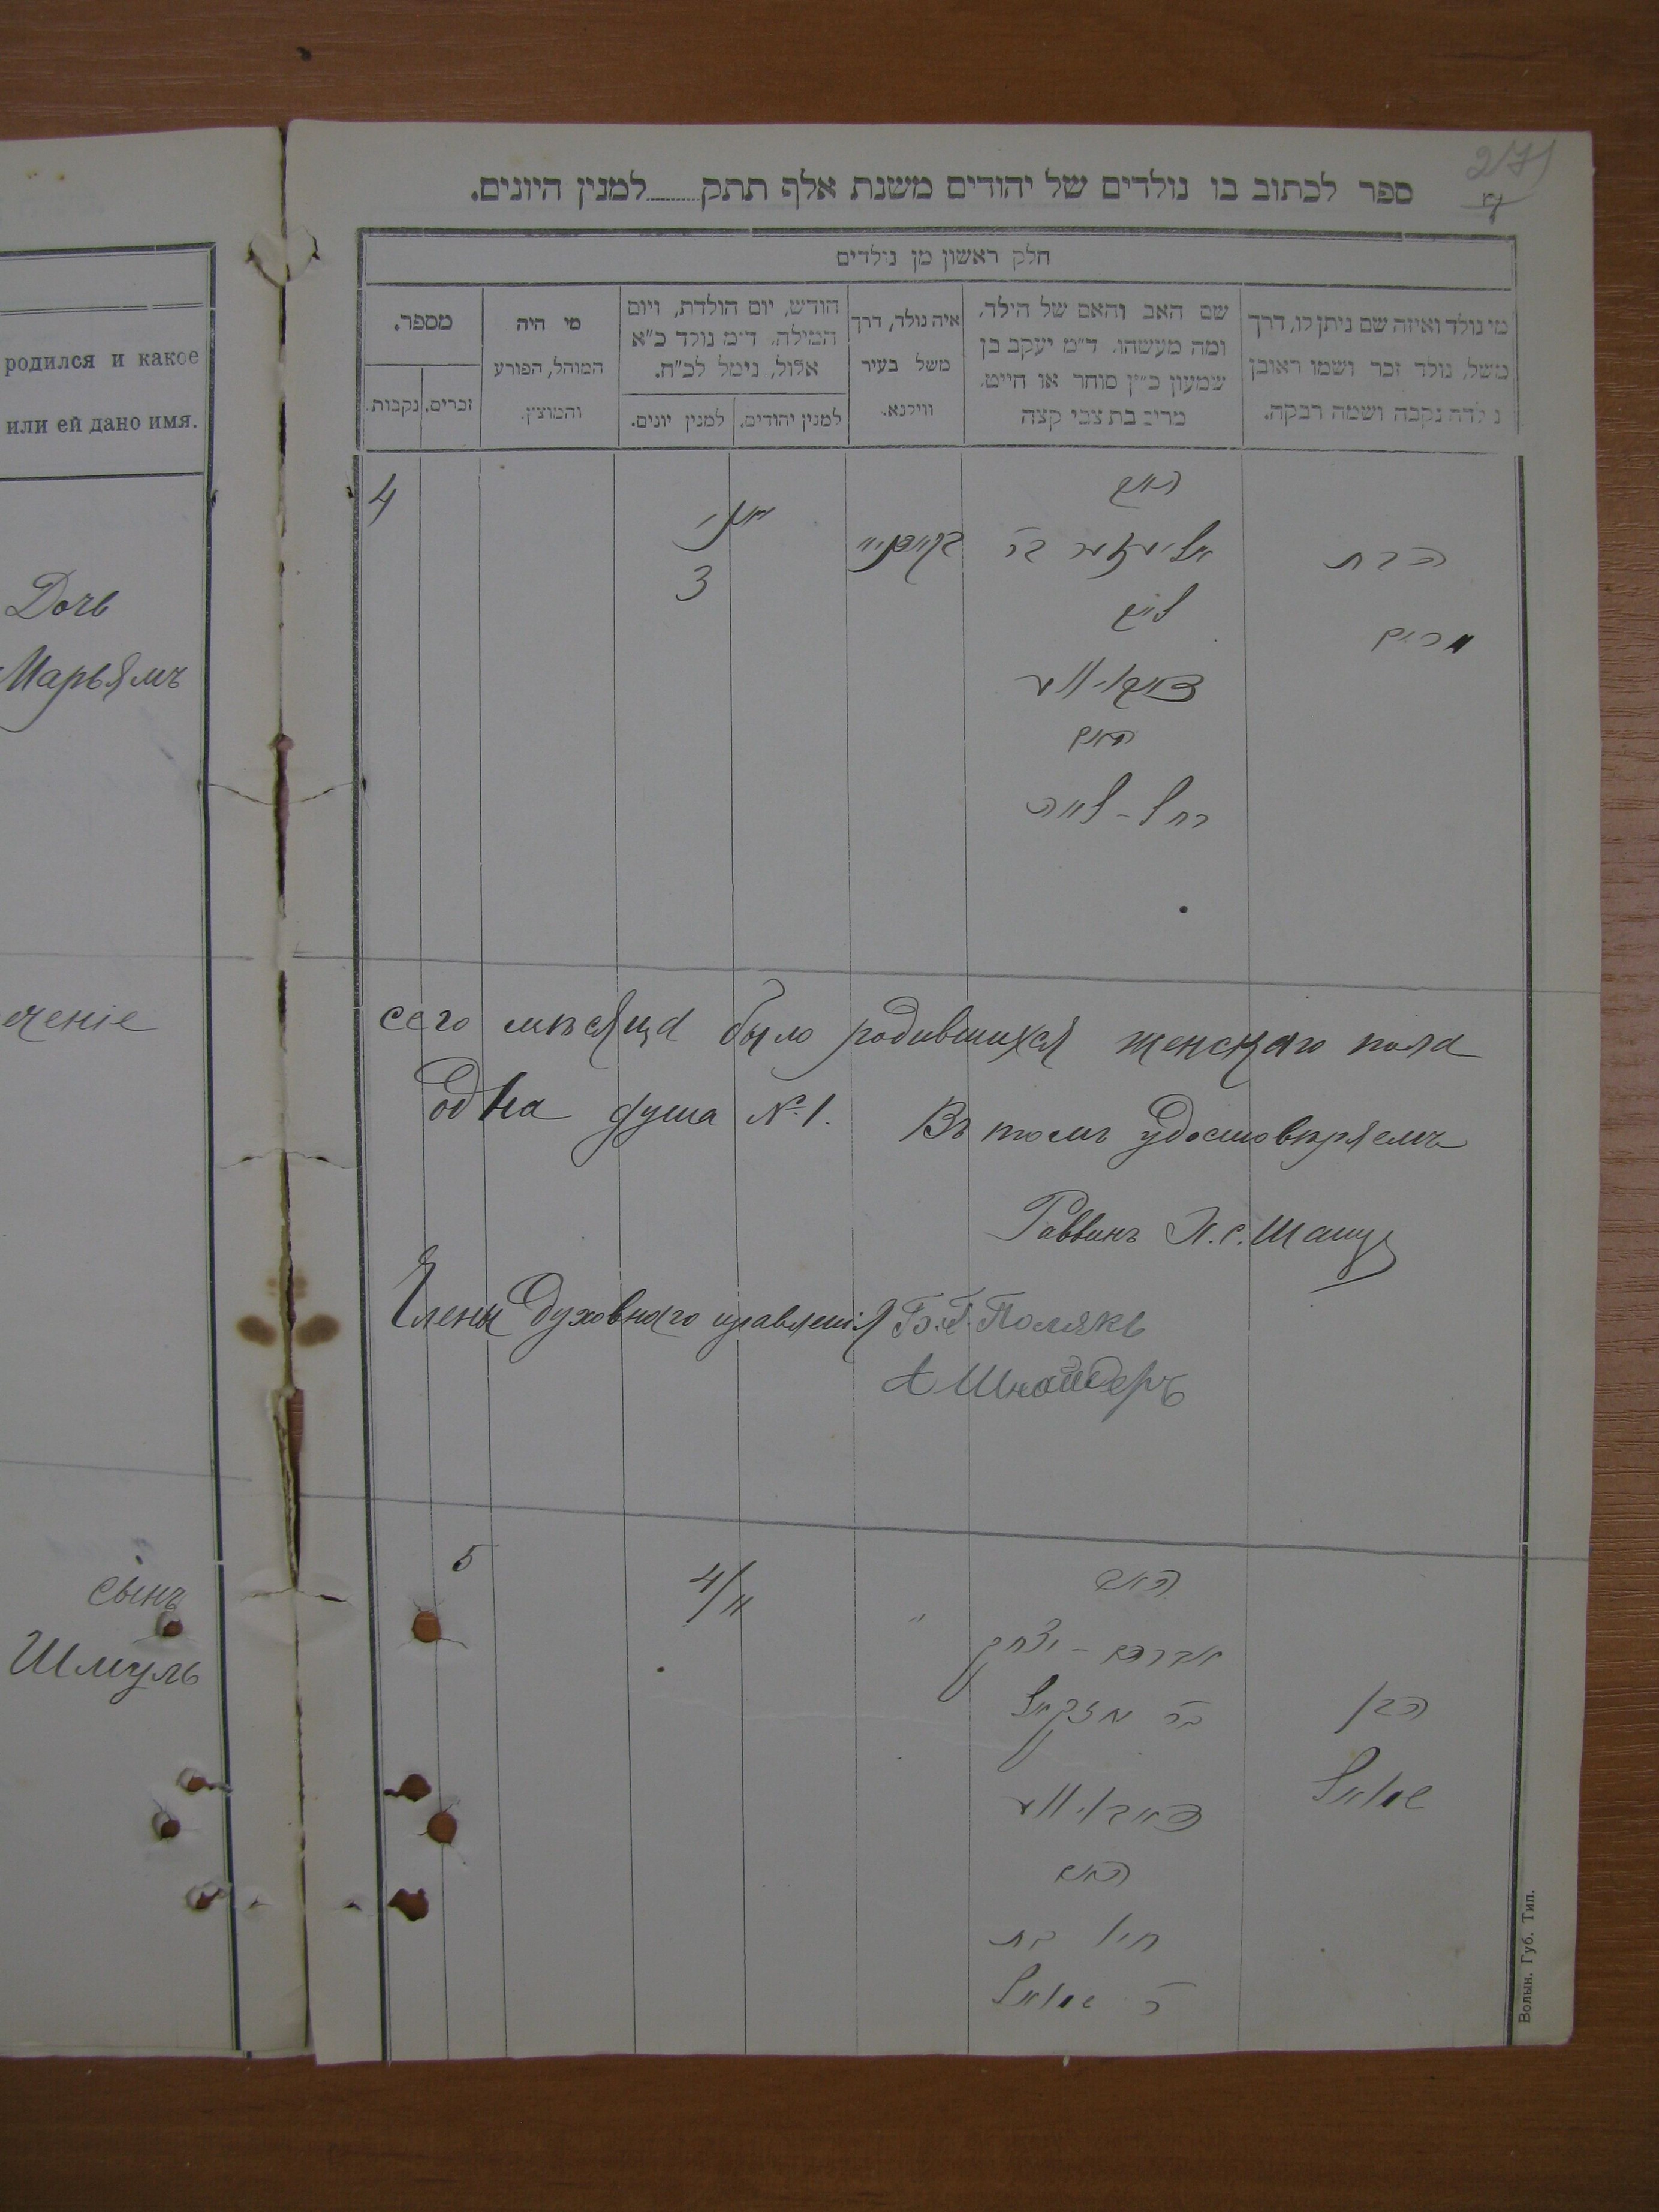 родился и какое
или ей дано имя.
Дочь
Марьямъ
ченіе
сынъ
Шмуль
271
ספר לכתוב בו נולדים של יהודים משנת אלף תתק.........למנין היונים.
חלק ראשון מן נולדים
מי נולד ואיזה שם ניתן לו, דרך
משל, נולד זכר ושמו ראובן
נולדה נקבה ושמה רבקה.
שם האב והאם של הילד,
ומה מעשהו. ד״מ יעקב בן
שמעון כ״ץ סוחר או חייט,
מרים בת צבי קצה
איה נולד, דרך
משל בעיר
ווילנא.
חודש, יום הולדת, ויום
המילה. ד״מ נולד כ״א
אלול, נימל לכ״ח.
למנין יהודים.
למנין יונים.
מי היה
המוהל, הפורע
והמוצץ.
מספר.
זכרים.
נקבות.
4
3
האב
אליעזר בר
ליב
האם
רחל - לאה
הבת
מרים
сего мѣсяца было родившихся женскаго пола
одна душа № 1. Въ томъ удостовѣряемъ
Раввинъ
Члены Духовнаго правленія Полякъ
А Шнайдеръ
5
4/II
"
האב
אברהם - יצחק
בר
האם
בת
ר שמואל
הבן
שמואל
Волын. Губ. Тип.